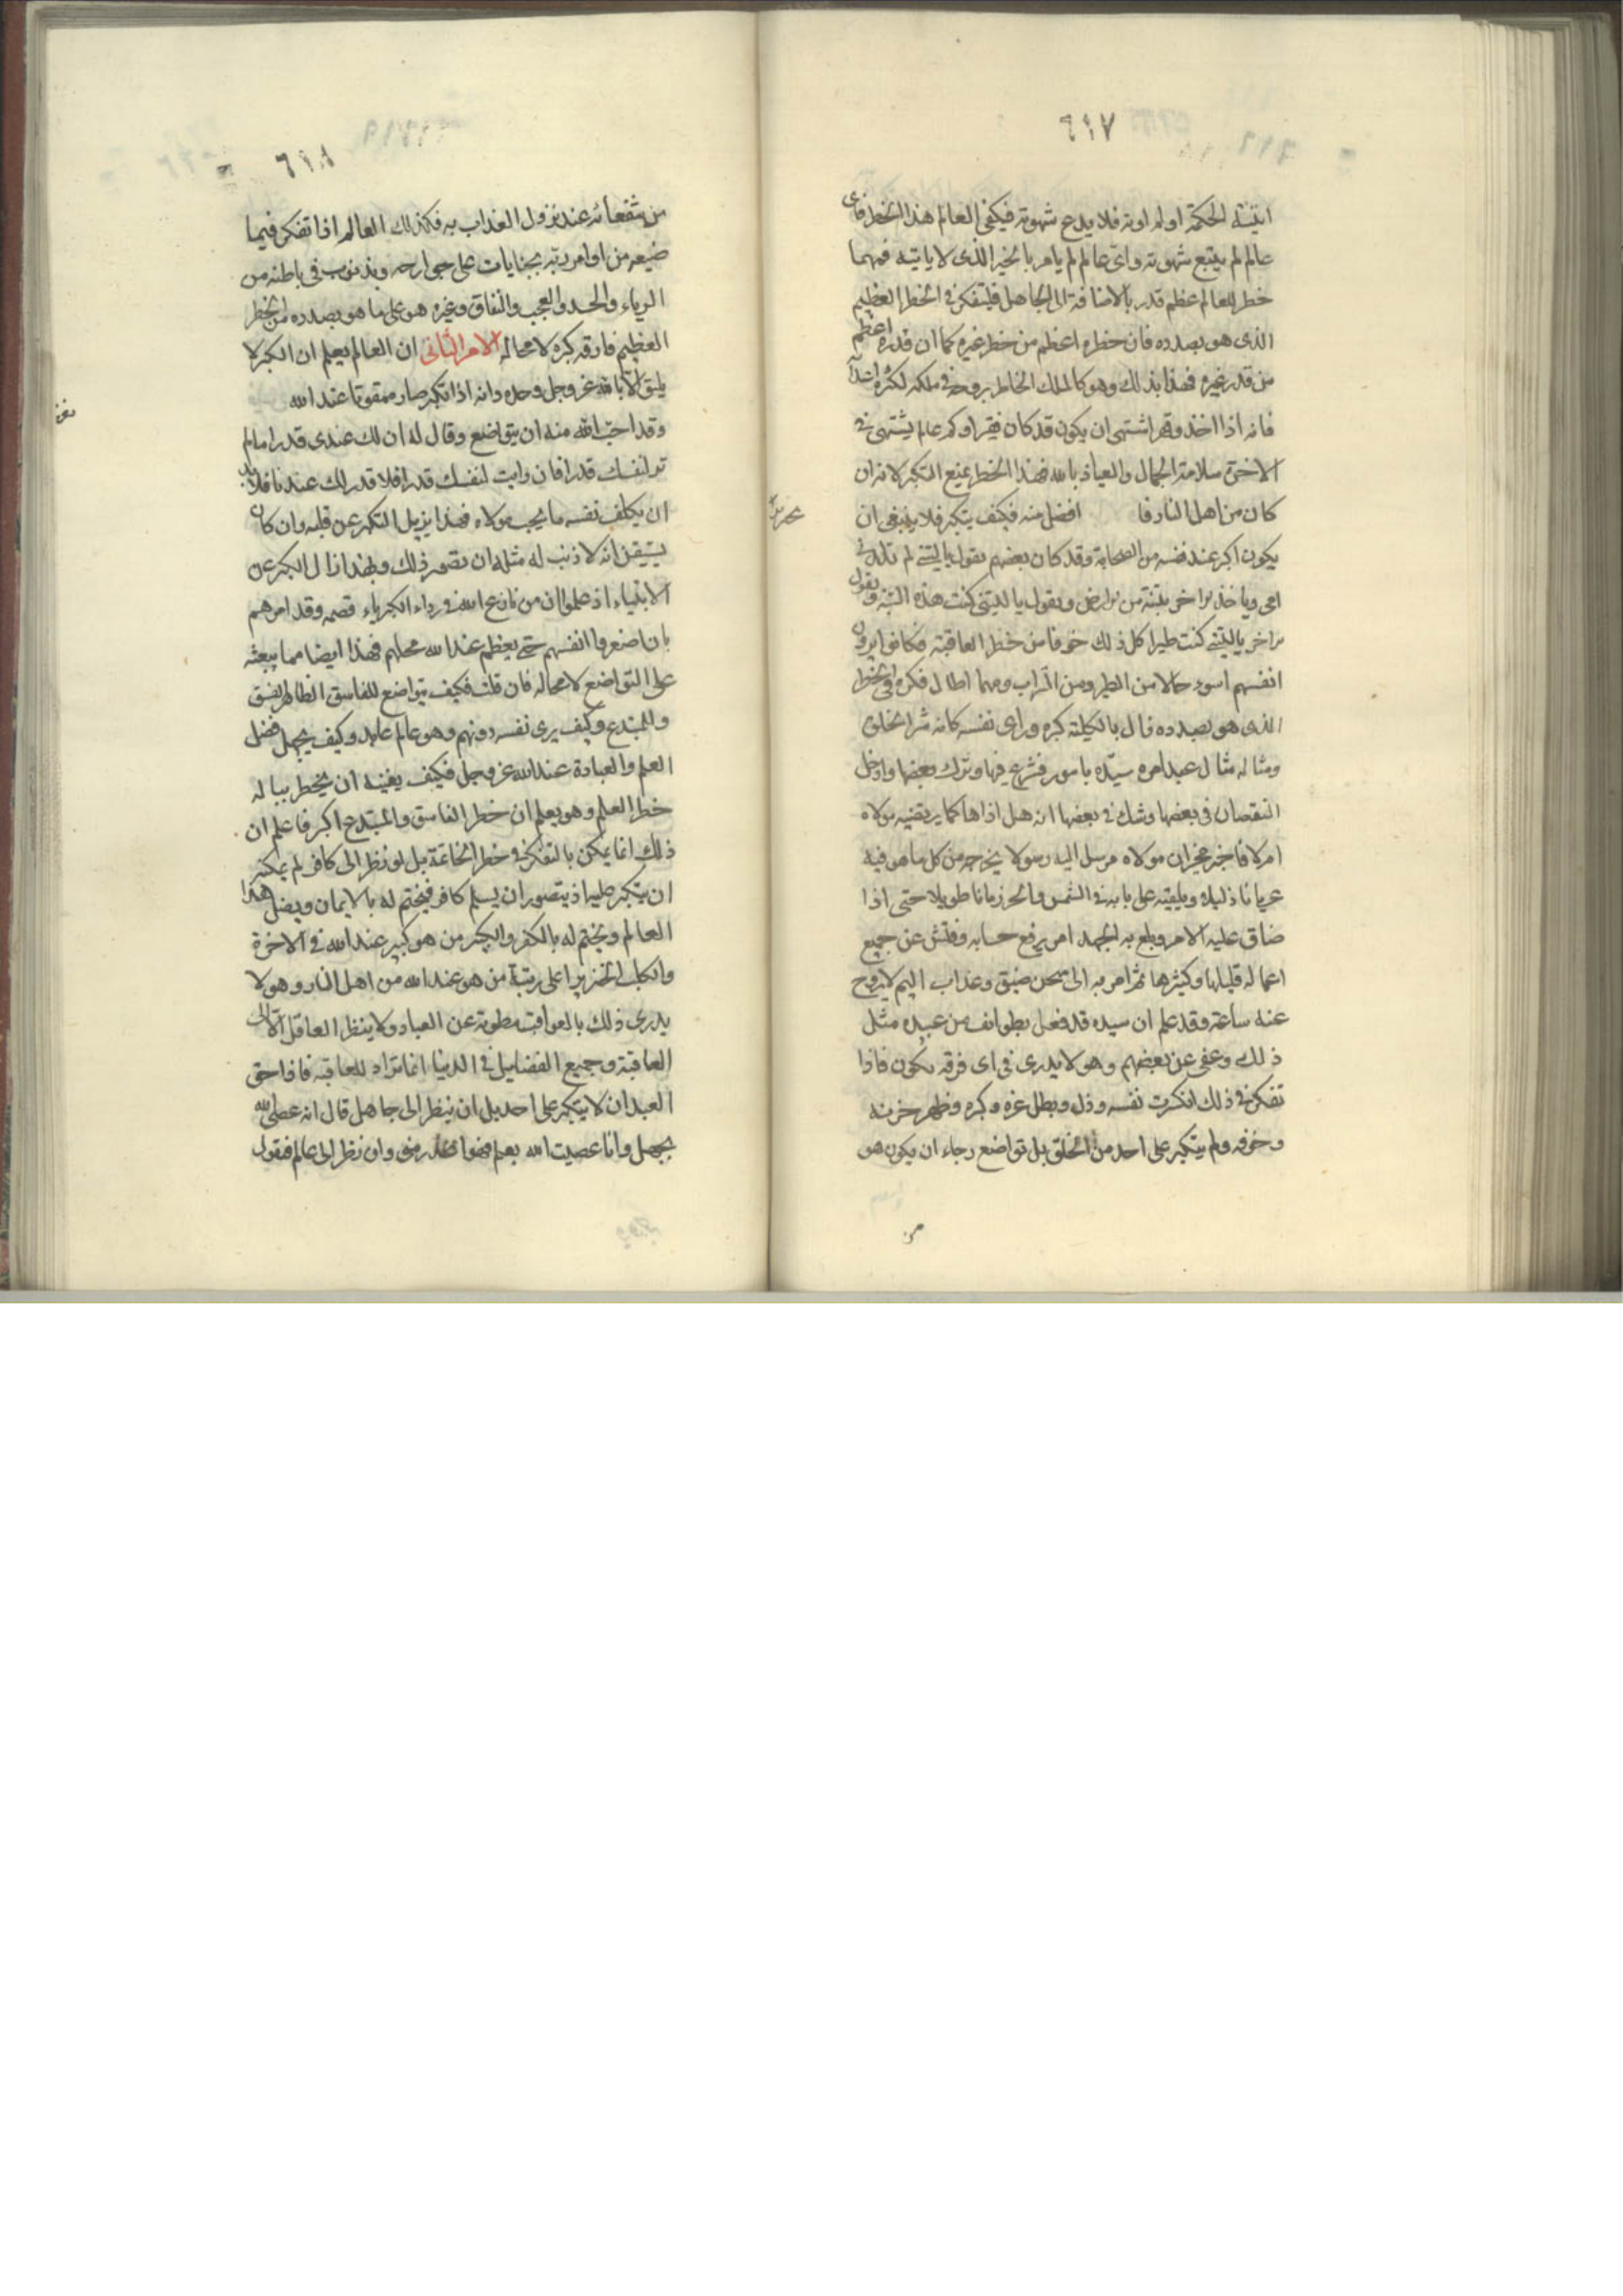 ٦١٧
اتيته الحكمة اولم اوته فلا يدع شهوته فيكفى العالم هذا الخطر فاى
عالم لم يتبع شهوته واى عالم لم يامر بالخير الذى لا ياتيه فمهما
خطر للعالم عظم قدر بالاضافة الى الجاهل فليتفكر فى الخطر العظيم
الذى هو بصدده فان خطره اعظم من خطر غيره كما ان قدره اعظم
من قدر غيره فهذا بذلك وهو كالملك الخاطر بروحه فى ملكه لكثرة اعدآ
فانه اذا اخذ وقهر اشتهى ان يكون قد كان فقيرا وكم عالم يشتهى فى
الاخرة سلامة الجهال والعياذ بالله فهذا الخطر يمنع التكبر لانه ان
كان من اهل النار فا افضل منه فكيف يتكبر فلا ينبغى ان
يكون اكبر عند نفسه من الصحابة وقد كان بعضهم يقول ياليتنى لم تلدنى
امى وياخذ براخر بتبنة من الارض ويقول ياليتنى كنت هذه التبنة ويقول
براخر ياليتنى كنت طيرا كل ذلك خوفا من خطر العاقبة فكانوا يرون
انفسهم اسوء حالا من الطير ومن التراب ومهما اطال فكره فى الخطر
الذى هو بصدده فال بالكلية كبره وراى نفسه كانه شر الخلق
ومثاله مثال عبد امره سيده بامور فشرع فيها وترك بعضها وادخل
النقصان فى بعضها وشك فى بعضها انه هل اداها كما يرتضيه مولاه
ام لا فاخبره مخبر ان مولاه مرسل اليه رسولا يخرجه من كل ما هو فيه
عريانا ذليلا ويلقيه على بابه فى الشمس والحر زمانا طويلا حتى اذا
ضاق عليه الامر وبلغ به الجهد امر برفع حسابه وفتش عن جميع
اعماله قليلها وكثيرها ثم امر به الى سجن ضيق وعذاب اليم لا يروح
عنه ساعة وقد علم ان سيده قد فعل بطوائف من عبيده مثل
ذلك وعفى عن بعضهم وهو لا يدرى فى اى فرقه يكون فاذا
تفكر فى ذلك انكرت نفسه وذل وبطل عزه وكبره وظهر حزنه
وخوفه ولم يتكبر على احد من الخلق بل تواضع رجاء ان يكون هو
من
٦١٨
من شفعائه عند نزول العذاب به فكذلك العالم اذا تفكر فيما
ضيعه من اوامر ربه بجنايات على جوارحه وبذنوب فى باطنه من
الرياء والحسد والعجب والنفاق وغيره هو على ما هو بصدده من الخطر
العظيم فارقه كبره لا محاله الامر الثانى ان العالم يعلم ان الكبر لا
يليق الا بالله عز وجل وحده وانه اذا تكبر صار ممقوتا عند الله
وقد احب الله منه ان يتواضع وقال له ان لك عندى قدرا ما لم
تر لنفسك قدرا فان رايت لنفسك قدرا فلا قدر لك عندنا فلابد
ان يكلف نفسه ما يحب مولاه فهذا يزيل التكبر عن قلبه وان كان
يستيقن انه لا ذنب له مثلا ان تصور ذلك وبهذا زال الكبر عن
الانبياء اذ علموا ان من نازع الله فى رداء الكبرياء قصمه وقد امرهم
بان اضعروا انفسهم حتى يعظم عند الله محلهم فهذا ايضا مما يبعثه
على التواضع لا محاله فان قلت فكيف يتواضع للفاسق الظاهر الفسق
والمبتدع وكيف يرى نفسه دونهم وهو عالم عابد وكيف يجهل فضل
العلم والعبادة عند الله عز وجل فكيف يغنيه ان يخطر بباله
خطر العلم وهو يعلم ان خطر الفاسق والمبتدع اكبر فاعلم ان
ذلك انما يمكن بالتفكر فى خطر الخاتمة بل لو نظر الى كافر لم يمكنه
ان يتكبر عليه اذ يتصور ان يسلم كافر فيختم له بالايمان ويضل هذا
العالم ويختم له بالكفر والكبير من هو كبير عند الله فى الاخرة
والكلب الخنزير اعلى رتبة من هو عند الله من اهل النار وهو لا
يدرى ذلك بالعواقب مطوية عن العباد ولا ينظر العاقل الا الى
العاقبة وجميع الفضايل فى الدنيا انما تراد للعاقبة فاذا حق
العبد ان لا يتكبر على احد بل ان ينظر الى جاهل قال انه عصى الله
بجهل وانا عصيت الله بعلم فهو اعذر منى وان نظر الى عالم فيقول